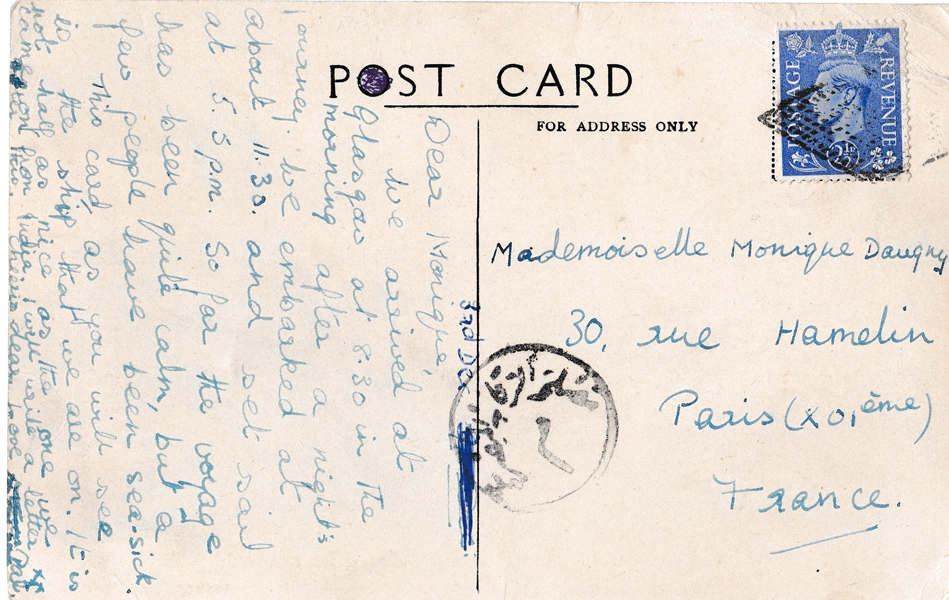 POST CARD
FOR ADDRESS ONLY
POSTAGE REVENUE
2½D
Dear Monique,
We arrived at
Glasgow at 8.30 in the
morning after a night's
journey. We embarked at
about 11.30. and set sail
at 5.5 p.m. So far the voyage
has been quite calm, but a
few people have been sea-sick.
This card, as you will see
is the ship that we are on. It is
not half as nice as the one we
came on from India. I will write a letter xx
Cheerio dear love
3rd Dec
Mademoiselle Monique Daugny
30, rue Hamelin
Paris (XVIème)
France.